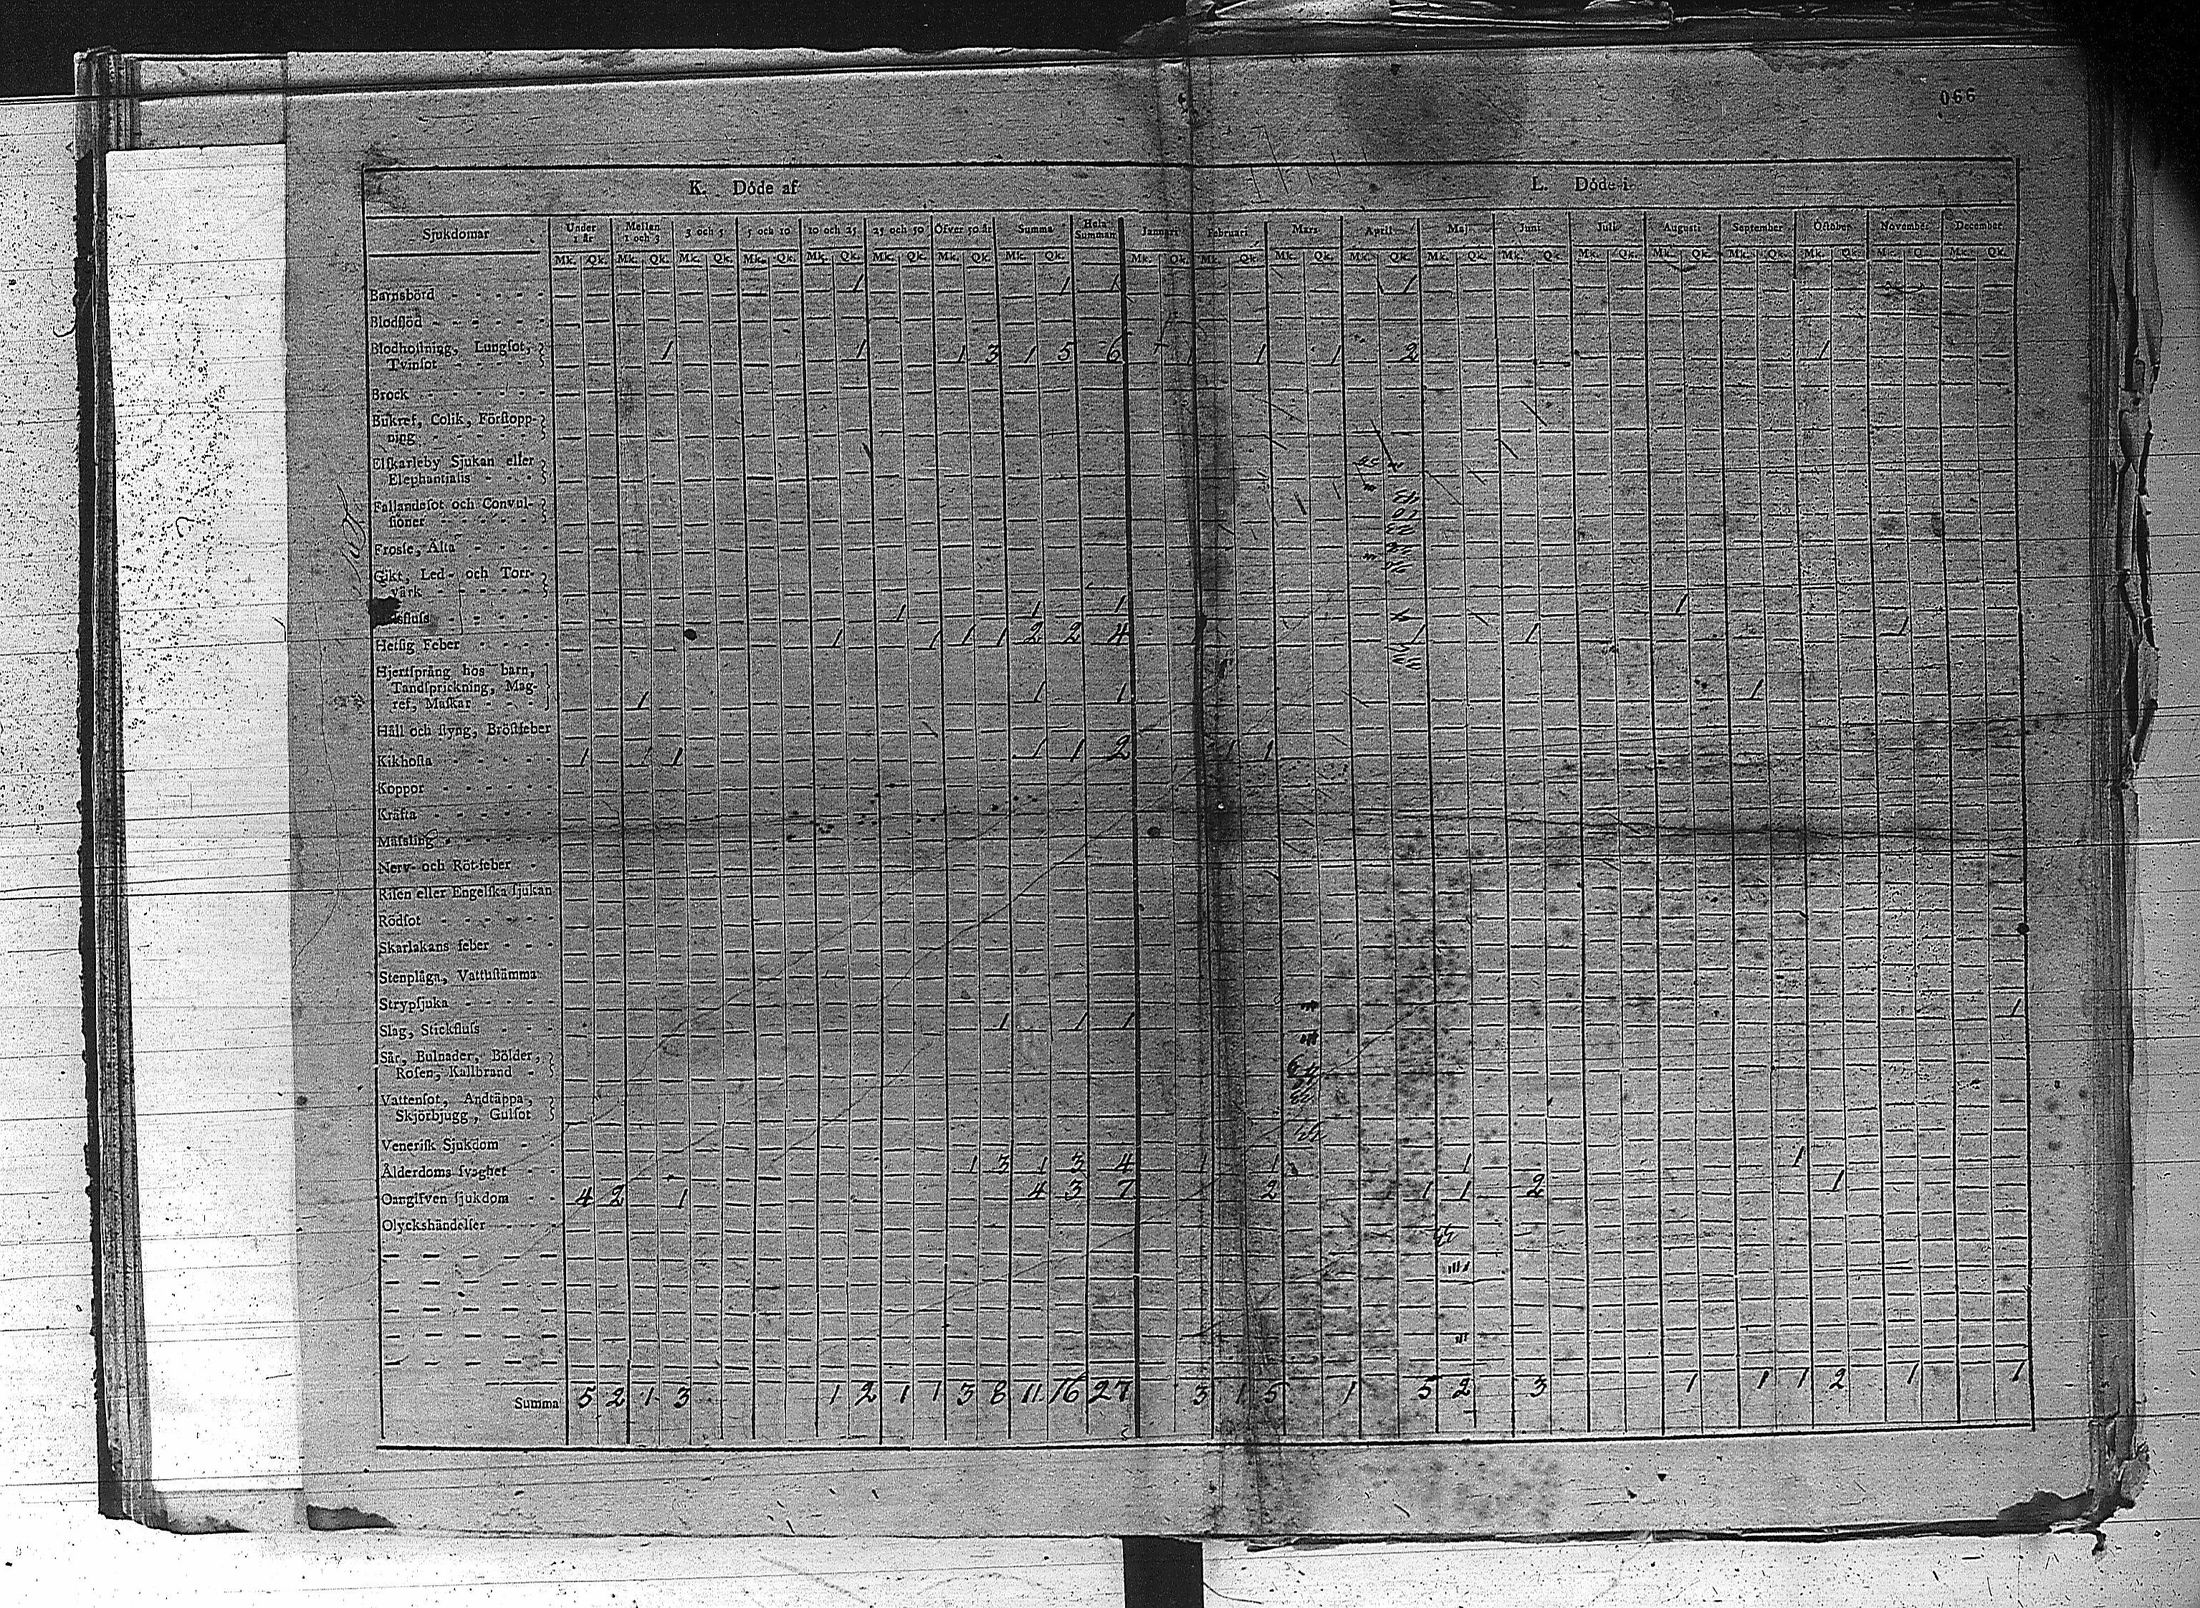 066
K. Döde af
L. Döde i
Sjukdomar Under 1 år Mellan 1 och 3 3 och 5 5 och 10 10 och 25 25 och 50 Öfver 50 år Summa Hela Summan Januari Februari Mars April Maj Juni Juli Augusti September October November December
Mk. Qk. Mk. Qk. Mk. Qk. Mk. Qk. Mk. Qk. Mk. Qk. Mk. Qk. Mk. Qk. Mk. Qk. Mk. Qk. Mk. Qk. Mk. Qk. Mk. Qk. Mk. Qk. Mk. Qk. Mk. Qk. Mk. Qk. Mk. Qk. Mk. Qk. Mk. Qk.
Barnsbörd 1 1 1 1
Blodflöd
Blodhoſtning, Lungſot,
Tvinſot 1 1 1 3 1 5 6 1 1 1 2 1
Brock
Bukref, Colik, Förſtopp-
ning
Elſkarleby Sjukan eller
Elephantiaſis
Fallandeſot och Convul-
ſioner
Frosſe, Älta
Gikt, Led- och Torr-
värk
1 1 1 1
Hetſig Feber 1 1 1 1 2 2 4 1 1 1 1
Hjertſprång hos barn,
Tandſprickning, Mag-
ref, Maſkar 1 1 1 1
Håll och ſtyng, Bröſtfeber
Kikhoſta 1 1 1 1 2 1 1
Koppor
Kräfta
Mäſsling
Nerv- och Rötfeber
Riſen eller Engelſka ſjukan
Rödſot
Skarlakans feber
Stenplåga, Vattuſtämma
Strypſjuka
Slag, Stickfluſs 1 1 1 1
Sår, Bulnader, Bölder,
Roſen, Kallbrand
Vattenſot, Andtäppa,
Skjörbjugg, Gulſot
Veneriſk Sjukdom
Ålderdoms ſvaghet 1 3 1 3 4 1 1 1 1
Oangifven ſjukdom 4 2 1 4 3 7 2 1 1 2 1
Olyckshändelſer
Summa 5 2 1 3 1 2 1 1 3 8 11 16 27 3 1 5 1 5 2 3 1 1 1 2 1 1